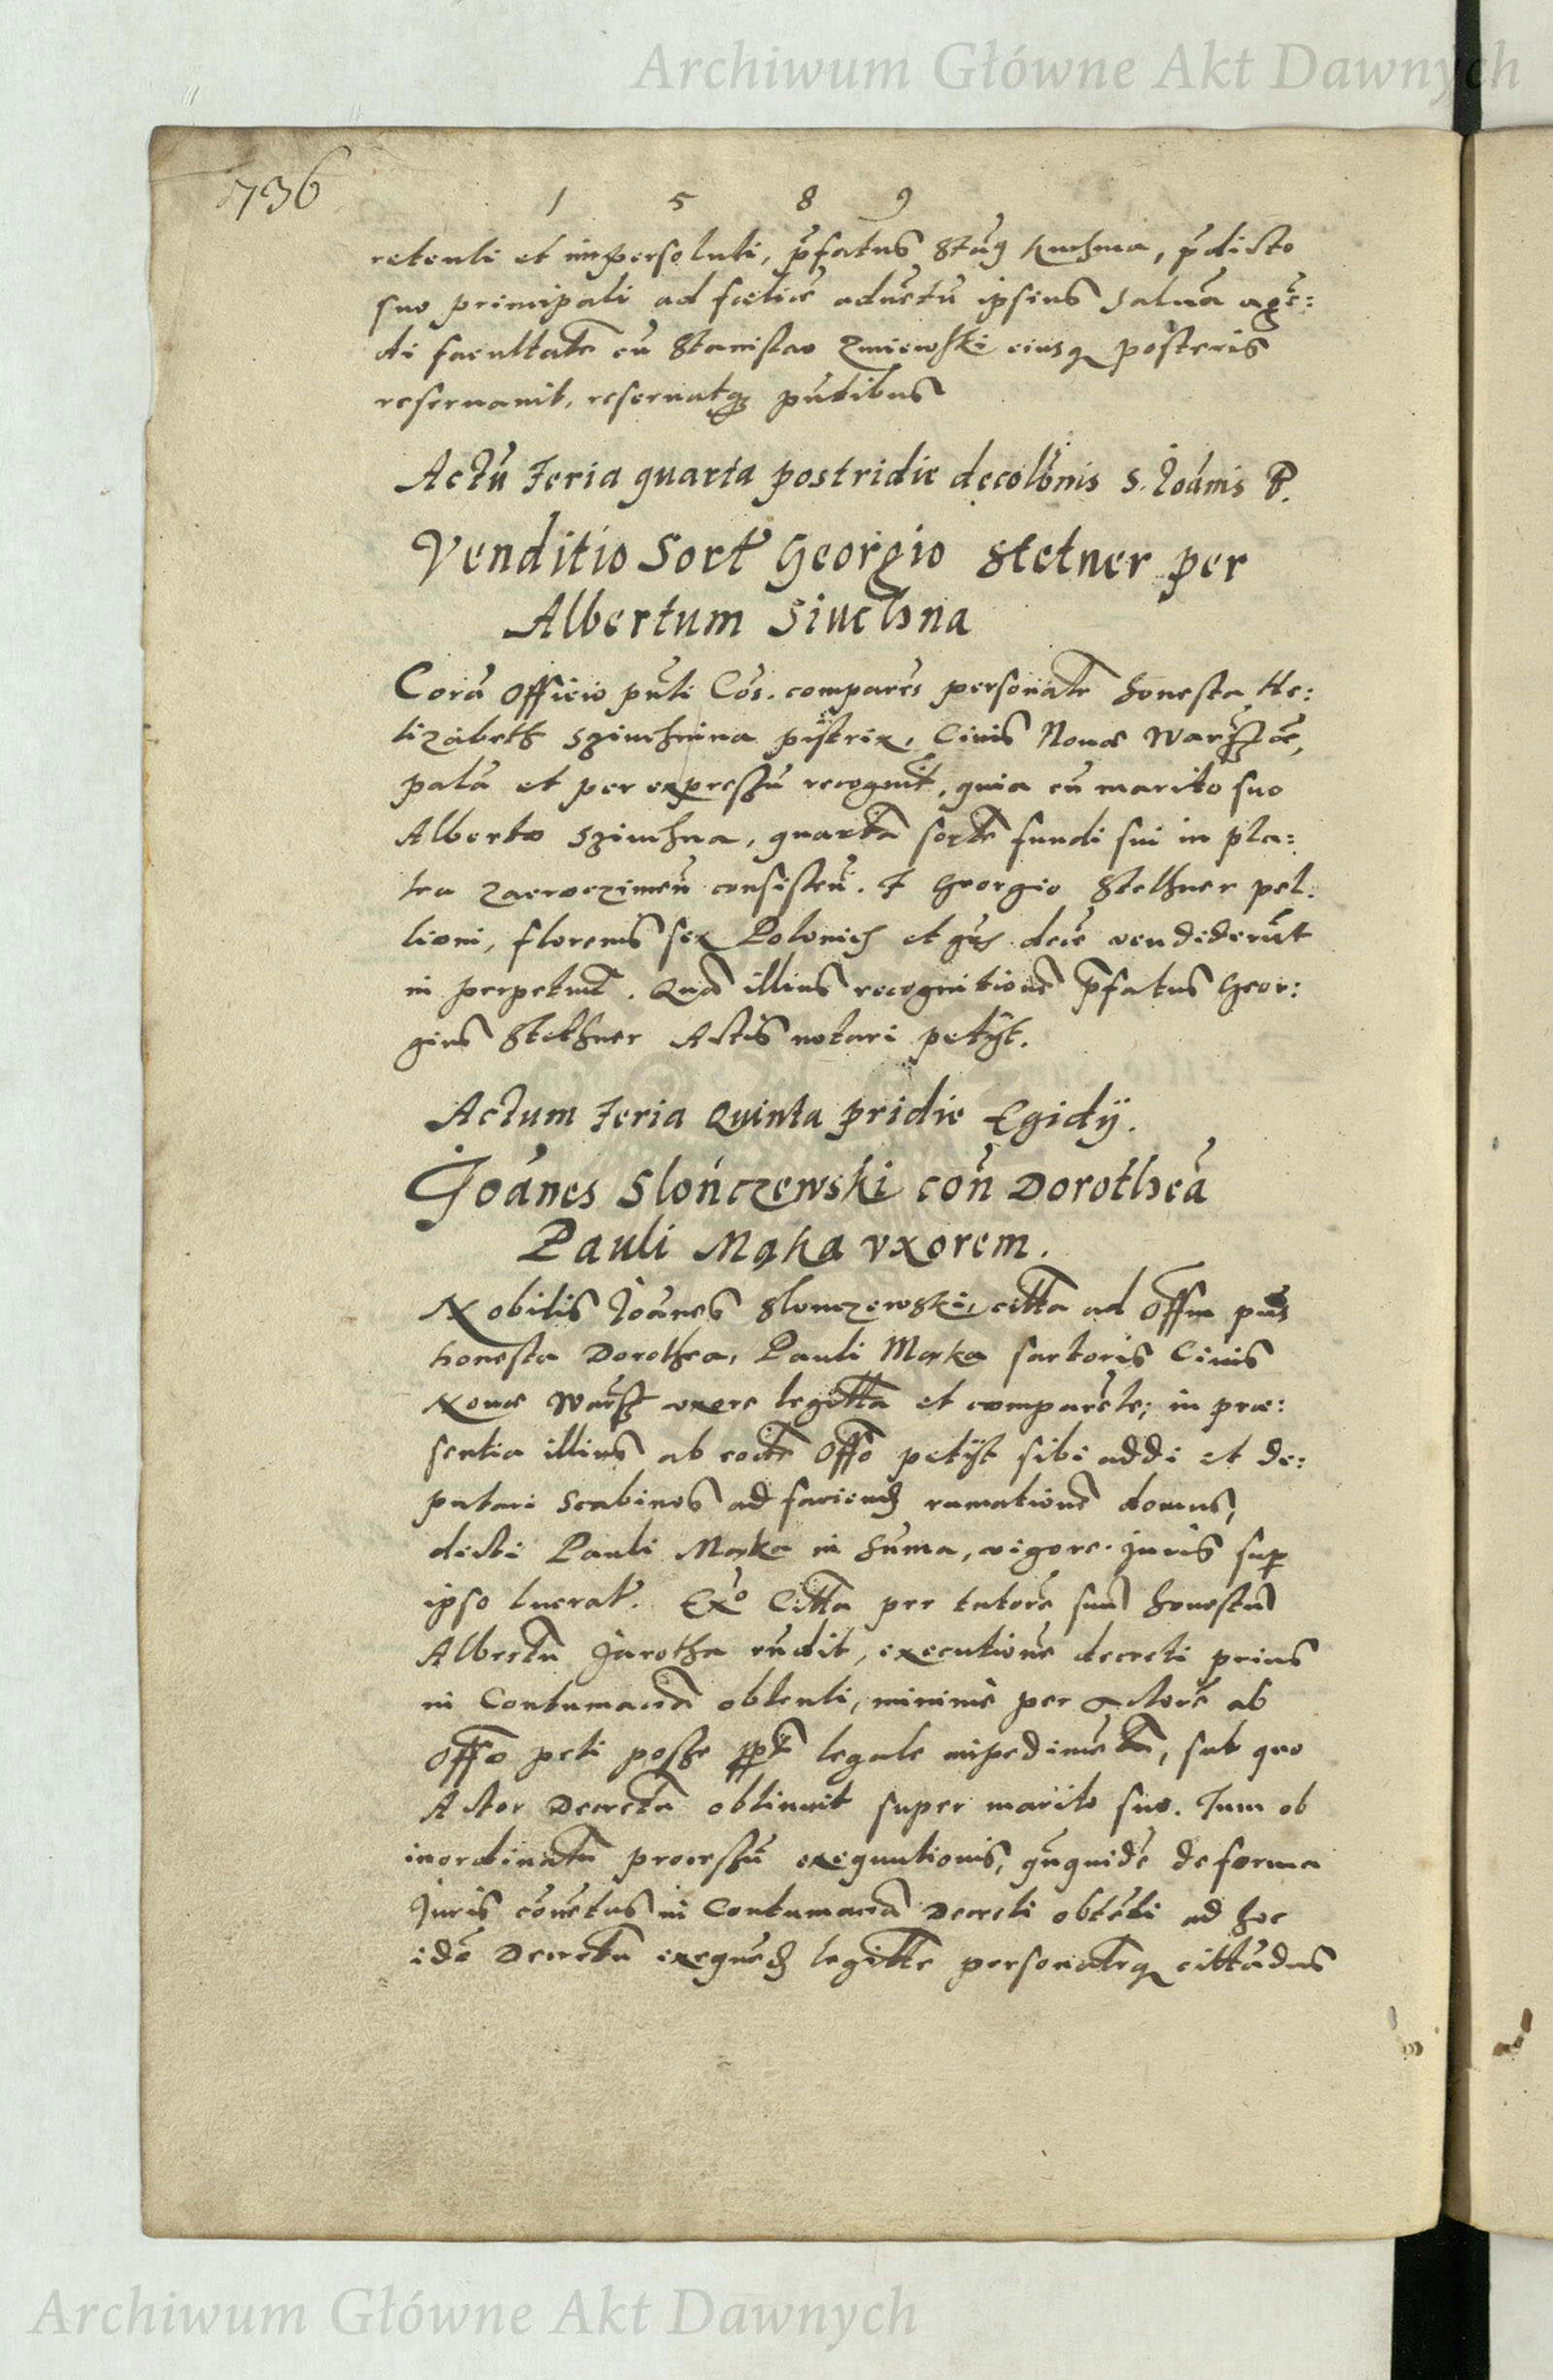 Archiwum Główne Akt Dawnych
736
1 5 8 9
retenti et impersoluti, p̃fatus Stãg Kuchma, p̃dicto
suo principali ad fœlicẽ aduẽtũ ipsius saluã agẽ:
di facultatẽ cũ Stanislao Zmiewski eiusq posteris
reseruauit, reseruatq₃ pũtibus
Actũ Feria quarta postridie decolõnis S. Joãnis B.
Venditio Sort̃ Georgio Stetner per
Albertum Siuchna
Corã Officio pũti Cõs. comparẽs personalt̃e honesta He:
lizabeth Sziuchnina pistrix, Ciuis Nouæ Warsz̃æ,
palã et per expressũ recognit̃, quia cũ marito suo
Alberto Sziuchna, quartã sortẽ fundi sui in pla:
tea Zacroczimeñ consisteñ. F Georgio Stethner pel:
lioni, florenis sex Polonich et gr̃s decẽ vendiderũt
in perpetuũ. Quã illius recognitionẽ p̃fatus Geor:
gius Stethner Actis notari petijt.
Actum Feria Quinta pridie Egidij.
Joãnes Slończewski coñ Dorotheã
Pauli Mąka vxorem.
Nobilis Joãnes Slonczewski, citt̃a ad Offm̃ pñs
honesta Dorothea, Pauli Mąka sartoris Ciuis
Nouæ Warsz̃ vxore legitt̃a et comparẽte; in præ:
sentia illius ab eodẽ Offõ petijt sibi addi et de:
putari Scabinos ad faciend₃ rumationẽ domus,
dicti Pauli Mąka in suma, vigore Juris sup
ipso lucrat̃. Exõ Citt̃a per tutorẽ suũ honestũ
Albertũ Jarotha rñdit, executionẽ decreti prius
in Contumaciã obtenti, minimè per Actorẽ ab
Offõ peti posse legale impedimẽtũ, sub quo
Actor Decretũ obtinuit super marito suo. Tum ob
inordinatũ processũ exequutionis, qñquidẽ de forma
Juris cõuẽtus in Contumaciã Decreti obtẽti ad hoc
idẽ Decretũ exequẽd₃ legitt̃e personalt̃eq cittãdus
Archiwum Główne Akt Dawnych